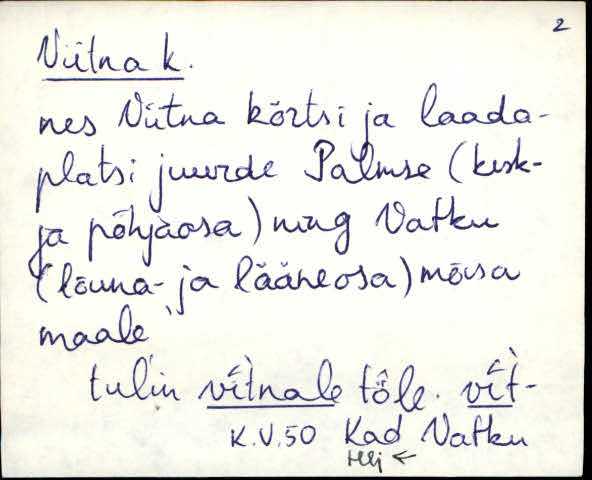 2
Viitna k.
nes Viitna kõrtsi ja laada-
platsi juurde Palmse (kesk-
ja põhjaosa) ning Vatku
(lõuna- ja lääneosa) mõisa
maale"
tulin vitnale tõle. vit-
K.V.50 Kad Vatku
Hlj ←